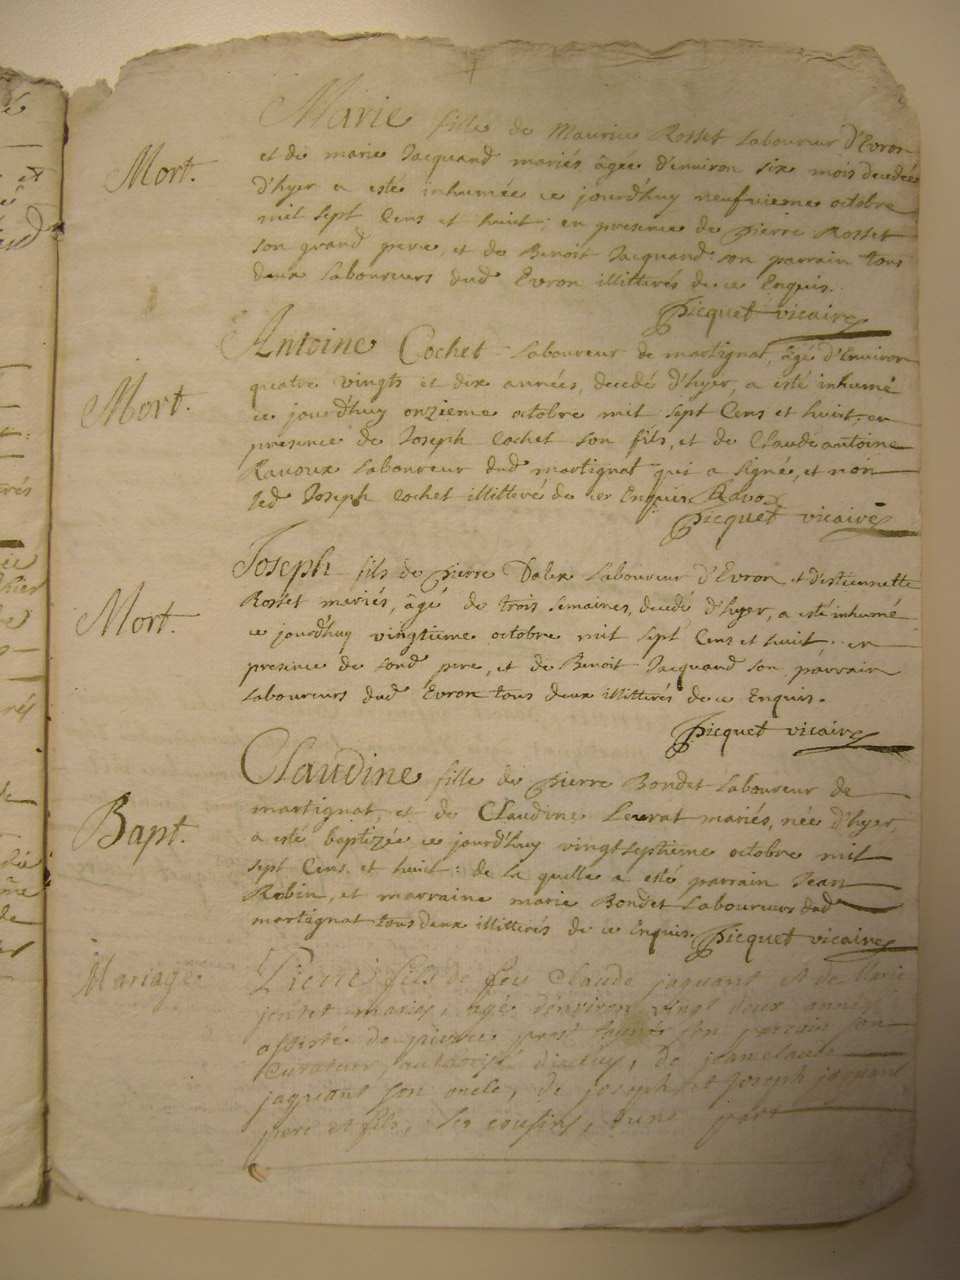 Mort.
Marie fille de Maurice Rosset laboureur d'Evron
et de marie Jacquand mariés, âgée d'environ six mois decedée
d'hyer a esté inhumée ce jourd'huy neufvieme octobre
mil sept Cens et huict; en presence de Pierre Rosset
son grand pere, et de Benoit Jacquand son parrain tous
deux laboureurs dud Evron illitterés de ce Enquis.
Picquet vicaire
Mort.
Antoine Cochet laboureur de martignat, âgé d'Environ
quatre vingts et dix années, decedé d'hyer, a esté inhumé
ce jourd'huy onzieme octobre mil sept Cens et huict, en
presence de Joseph Cochet son fils, et de Claude antoine
Ravoux laboureur dud martignat qui a signé, et non
led Joseph Cochet illitteré de cet Enquis. Ravo
Picquet vicaire
Mort.
Joseph fils de Pierre Dalex laboureur d'Evron et d'estiennette
Rosset mariés, âgé de trois semaines, decedé d'hyer, a esté inhumé
ce jourd'huy vingtieme octobre mil sept Cens et huict. en
presence de sond pere, et de Benoit Jacquand son parrain
laboureurs dud Evron tous deux illitterés de ce Enquis.
Picquet vicaire
Bapt.
Claudine fille de Pierre Bondet laboureur de
martignat, et de Claudine Levrat mariés, née d'hyer,
a esté baptizée ce jourd'huy vingt septieme octobre mil
sept Cens. et huict: de la quelle a esté parrain Jean
Robin, et marraine marie Bondet laboureurs dud
martignat tous deux illitterés de ce Enquis. Picquet vicaire
Mariage
Pierre fils de feu Claude jaquant et de Marie
mariés, agé d'environ vingt deux années
assisté de pierre son parrain son
Curateur, de jean Claude
jaquant son oncle, de joseph et joseph jaquant
pere et fils, ses cousins, d'une part